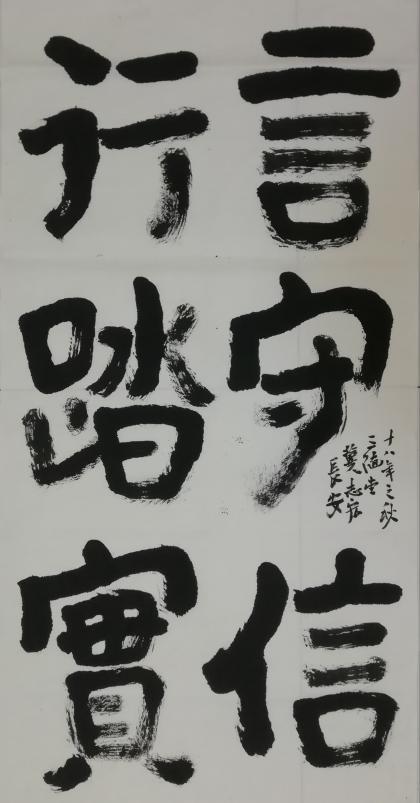 言守信
行踏實
十八年之秋
三緘堂
龔志宏
長安